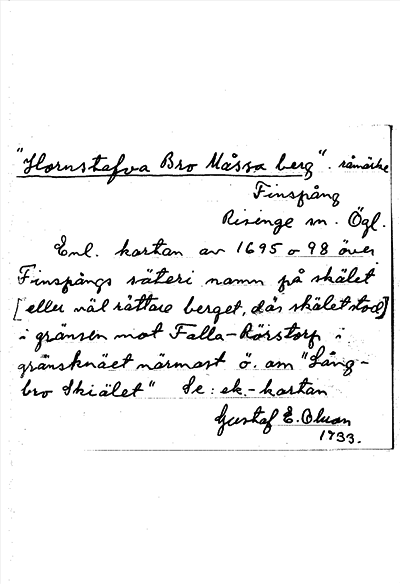 "Hornstafva Bro Måssa berg". råmärke
Finspång
Risinge sn. Ögl.
Enl. kartan av 1695 o 98 över
Finspångs säteri namn på skälet
[eller väl rättare berget, där skälet stod]
i gränsen mot Falla-Rörstorp i
gränsknäet närmast ö. om "Lång-
bro Skiälet" Se: ek.-kartan
Gustaf E. Olsson
1933.